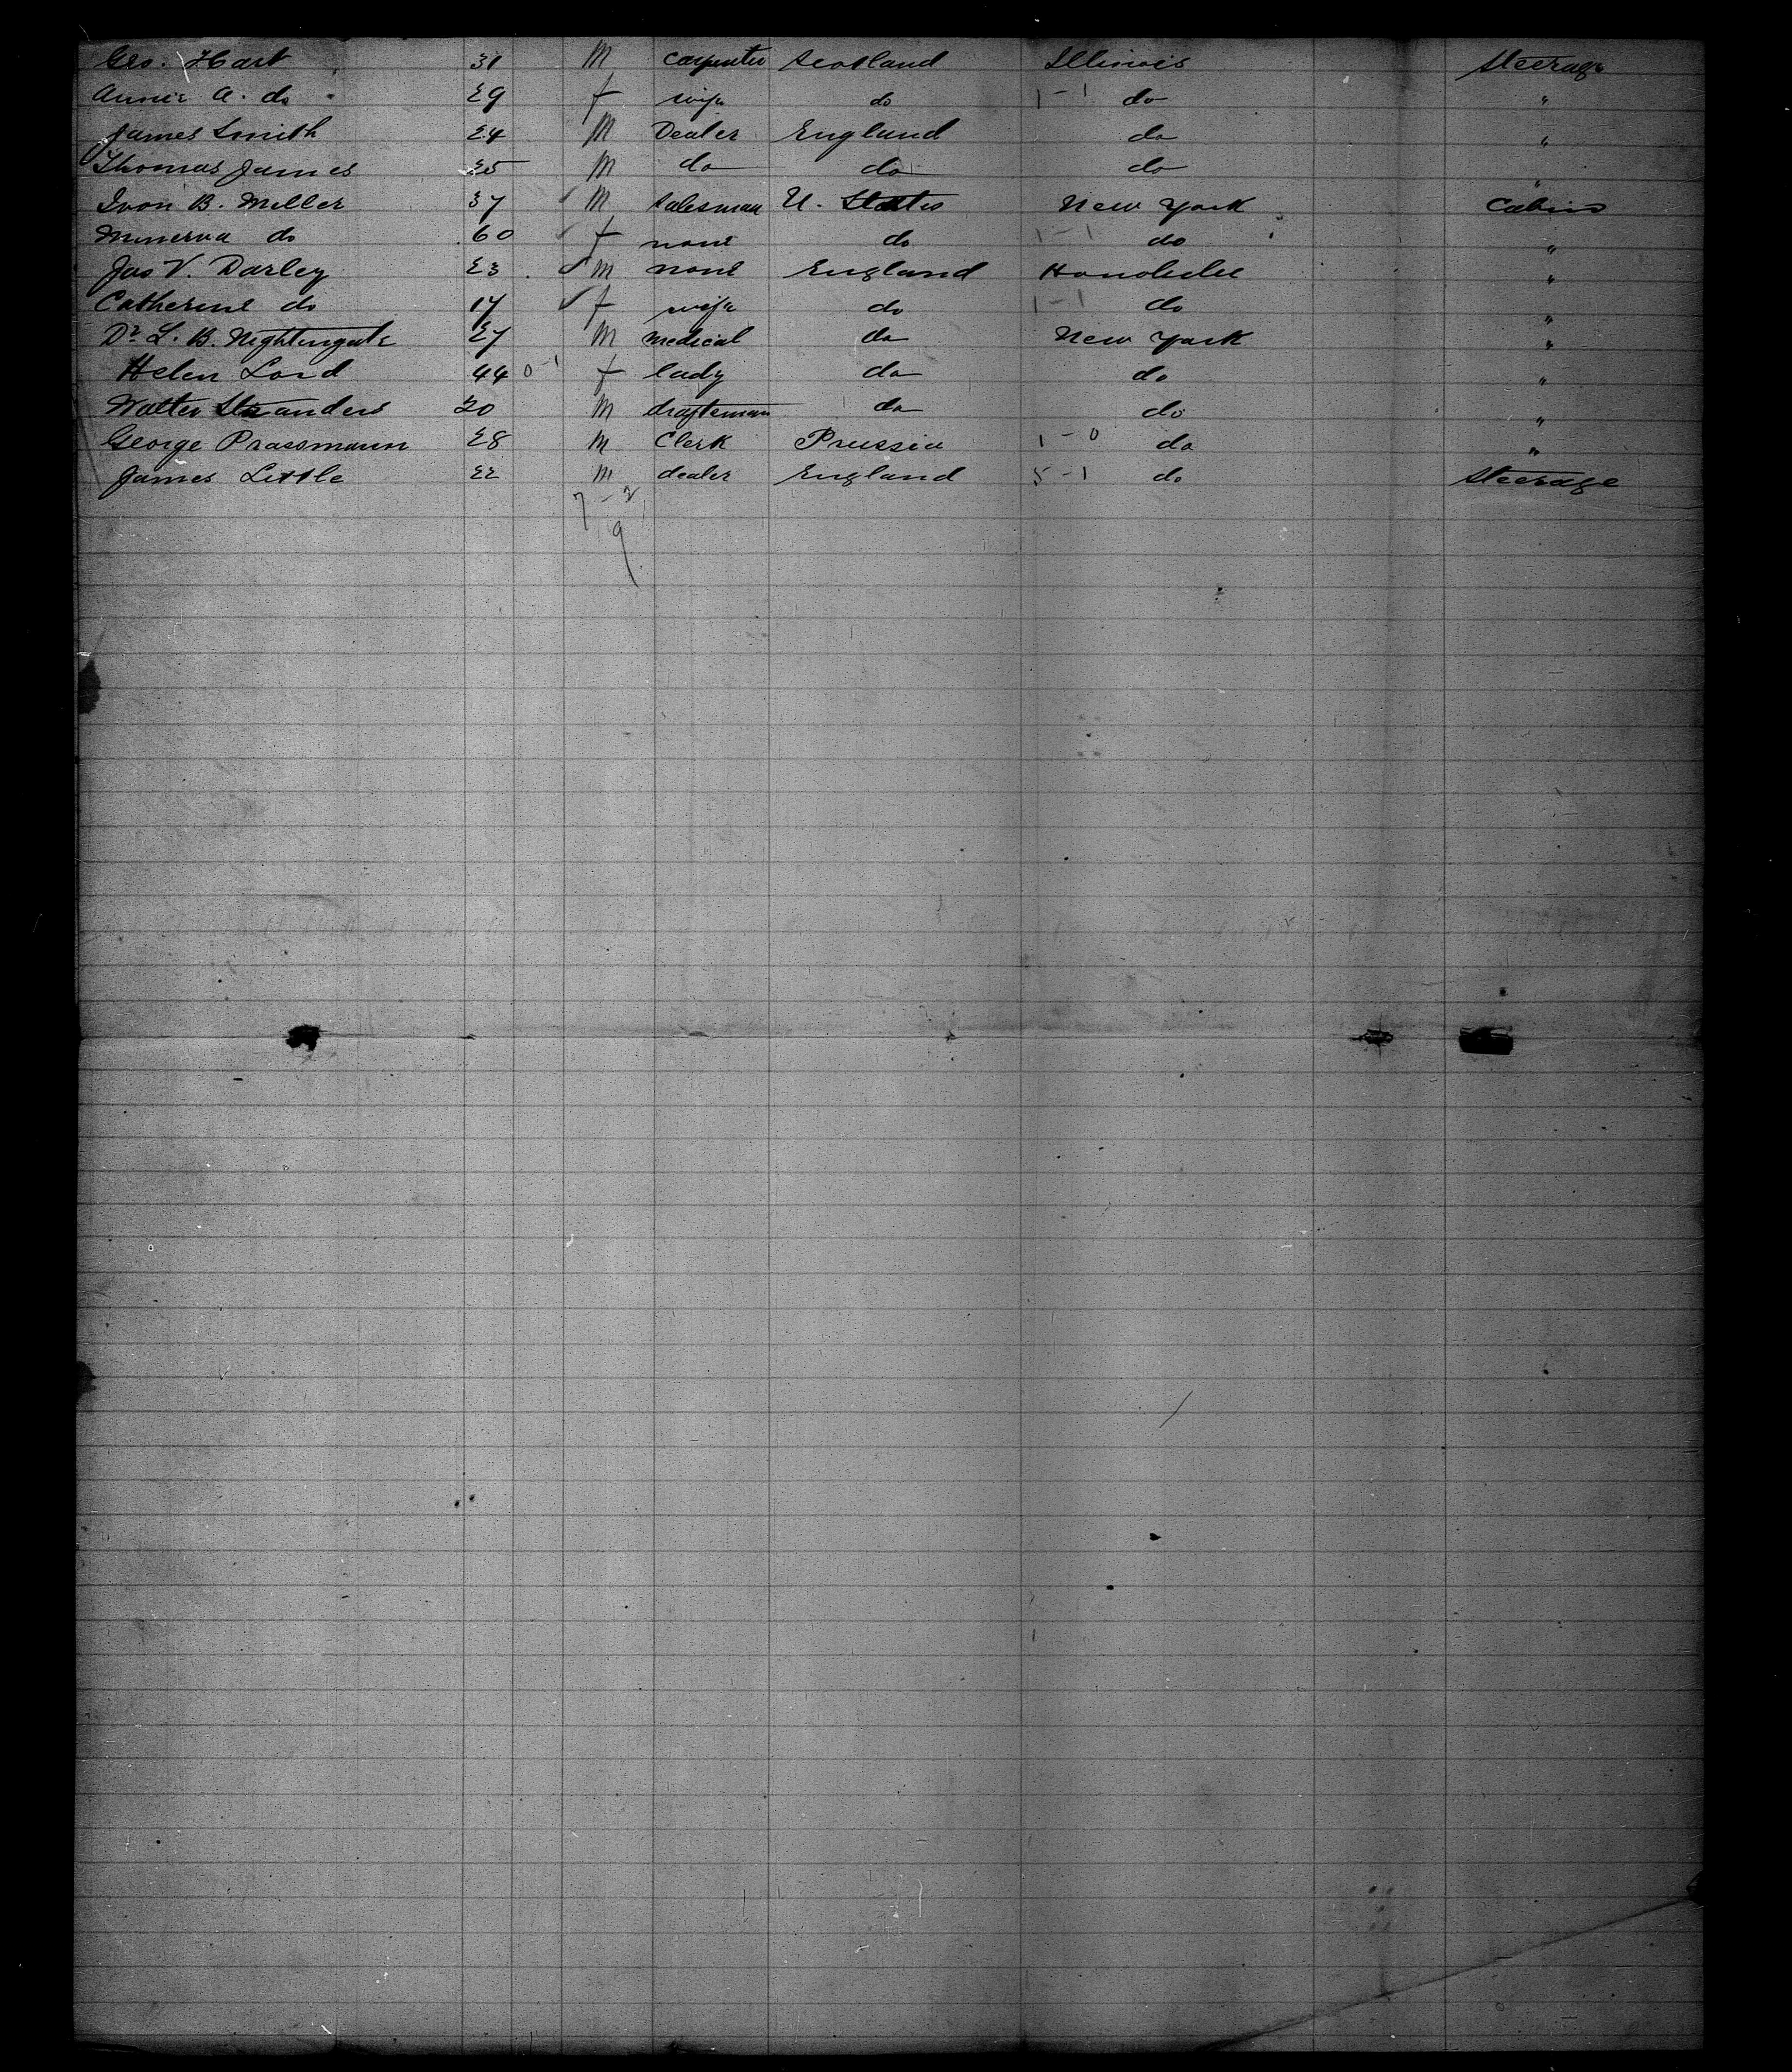 Geo. Hart 31 M Carpenter Scotland Illinois Steerage
Annie A. do 29 f wife do 1-1 do "
James Smith 24 M Dealer England do "
Thomas James 25 M do do do "
Ivon B. Miller 37 ✓ M Salesman U. States New York Cabin
Minerva do 60 ✓ f none do 1-1 do "
Jas V. Darley 23 ✓ M none England Honolulu "
Catherine do 17 ✓ f wife do 1-1 do "
Dr L. B. Nightingale 27 M medical do New York "
Helen Lord 44 0-1 f lady do do "
Walter Standers 20 M draftsman do do "
George Prassmann 28 M Clerk Prussia 1-0 do "
James Little 22 M dealer England 5-1 do Steerage
7-2
9